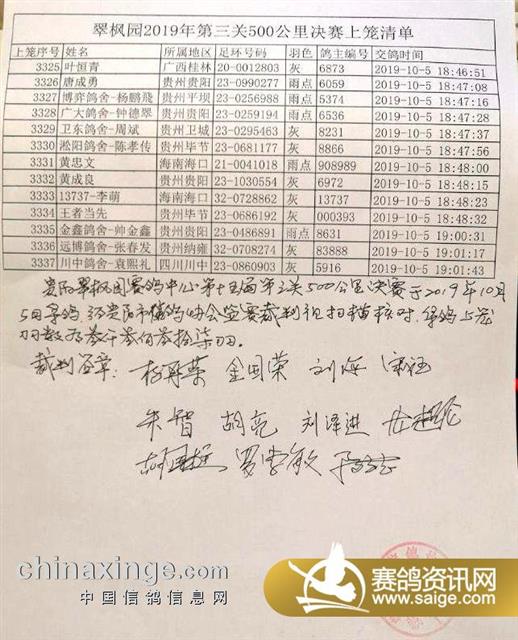 翠枫园2019年第三关500公里决赛上笼清单
上笼序号 姓名 所属地区 足环号码 羽色 鸽主编号 交鸽时间
3325 叶恒青 广西桂林 20-0012803 灰 6873 2019-10-5 18:46:51
3326 唐成勇 贵州贵阳 23-0990277 雨点 6059 2019-10-5 18:47:08
3327 博弈鸽舍-杨鹏飛 贵州平坝 23-0256988 雨点 5374 2019-10-5 18:47:16
3328 广大鸽舍-钟德翠 贵州贵阳 23-0259194 雨点 6536 2019-10-5 18:47:28
3329 卫东鸽舍-周斌 贵州卫城 23-0295463 灰 8231 2019-10-5 18:47:37
3330 淞阳鸽舍-陈孝传 贵州毕节 23-0681177 灰 8866 2019-10-5 18:47:56
3331 黄忠文 海南海口 21-0041018 雨点 908989 2019-10-5 18:48:00
3332 黄成良 贵州贵阳 23-1030554 灰 6972 2019-10-5 18:48:15
3333 13737-李萌 海南海口 32-0728862 灰 13737 2019-10-5 18:48:23
3334 王者当先 贵州毕节 23-0686192 灰 000393 2019-10-5 18:48:32
3335 金鑫鸽舍-帅金鑫 贵州贵阳 23-0486891 雨点 8631 2019-10-5 19:00:31
3336 远博鸽舍-张春发 贵州纳雍 32-0708274 灰 83888 2019-10-5 19:01:17
3337 川中鸽舍-袁熙礼 四川川中 23-0860903 灰 5916 2019-10-5 19:01:43
贵阳翠枫园赛鸽中心第十五届第三关500公里决赛于2019年10月
5日集鸽 经贵阳市信鸽协会监赛裁判现扫描核对,集鸽上笼
羽数为叁仟叁佰叁拾柒羽。
裁判签章: 金国荣 刘海
朱智 胡亮 刘泽进
罗孝敏
chinaxinge.com
中国信鸽信息网
赛鸽资讯网
www.saige.com